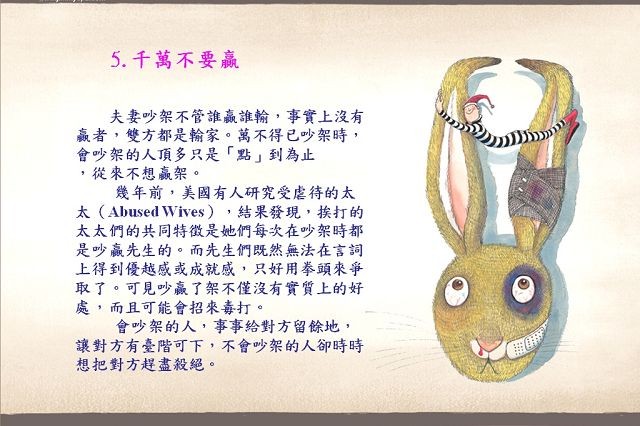 5.千萬不要贏
夫妻吵架不管誰贏誰輸，事實上沒有
贏者，雙方都是輸家。萬不得已吵架時，
會吵架的人頂多只是「點」到為止
，從來不想贏架。
幾年前，美國有人研究受虐待的太
太（Abused Wives），結果發現，挨打的
太太們的共同特徵是她們每次在吵架時都
是吵贏先生的。而先生們既然無法在言詞
上得到優越感或成就感，只好用拳頭來爭
取了。可見吵贏了架不僅沒有實質上的好
處，而且可能會招來毒打。
會吵架的人，事事給對方留餘地，
讓對方有臺階可下，不會吵架的人卻時時
想把對方趕盡殺絕。